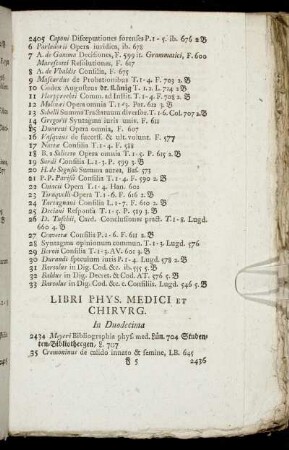 2405 Caponi Disceptationes forenses P. 1-5. ib. 676 2 B
6 Parladorii Opera iuridica, ib. 678
7 A. de Gamma Decisiones, F. 599 it. Grammatici, F. 600
Marefcotti Resolutiones, F. 617
8 A. de Vbaldis Consilia, F. 675
9 Mascardus de Probationibus T. 1-4. F. 703 2. B
10 Codex Augusteus dr. König T. 1. 2. L. 724 2 B
11 Harpprechti Comm. ad Instit. T. 1-4. F. 708 2. B
12 Molinæi Opera omnia T. 1-3. Par. 621 3. B
13 Schelii Summa Tractatuum diversor. T. 1. 6. Col. 707 2 B
14 Gregorii Syntagma iuris univ. F. 611
15 Duareni Opera omnia, F. 607
16 Vasquius de success. & ult. volunt. F. 577
17 Nattæ Consilia T. 1-4. F. 588
18 B. a Saliceto Opera omnia T. 1-5. P. 615 2 B
19 Surdi Consilia L. 1-3. P. 599 2. B
20 H. de Segusio Summa aurea, Bas. 573
21 P. P. Parisii Consilia T. 1-4. F. 590 2. B
22 Cuneii Opera T. 1-4. Han. 602
23 Tiraquelli Opera T. 1-6. F. 616 2. B
24 Tartagnani Consilia L. 1-7. F. 610 2. B
25 Deciani Responsa T. 1-5. P. 519 3. B
26 D. Tuschii, Card. Conclusiones pract. T. 1-8. Lugd.
660 4. B
27 Cravetta Consilia P. 1-6. F. 611 2. B
28 Syntagma opinionum commun. T. 1-3. Lugd. 576
29 Berniæ Consilia T. 1-3. AV. 601 3. B
30 Durandi speculum iuris P. 1-4. Lugd. 578 2. B
31 Bartolus in Dig. Cod. &c. ib. 555 5. B
32 Baldus in Dig. Decret. & Cod. AT. 576 5. B
33 Bartolus in Dig. Cod. &c. c. Consiliis. Lugd. 546 5. B
LIBRI PHYS. MEDICI ET
CHIRVRG.
In Duodecimo
2434 Meyeri Bibliographia phys. med. Lün. 704 Studen-
ten-Bibliothecgen, L. 707
35 Cremoninus de calido innato & semine, LB. 645
§ 5 2436